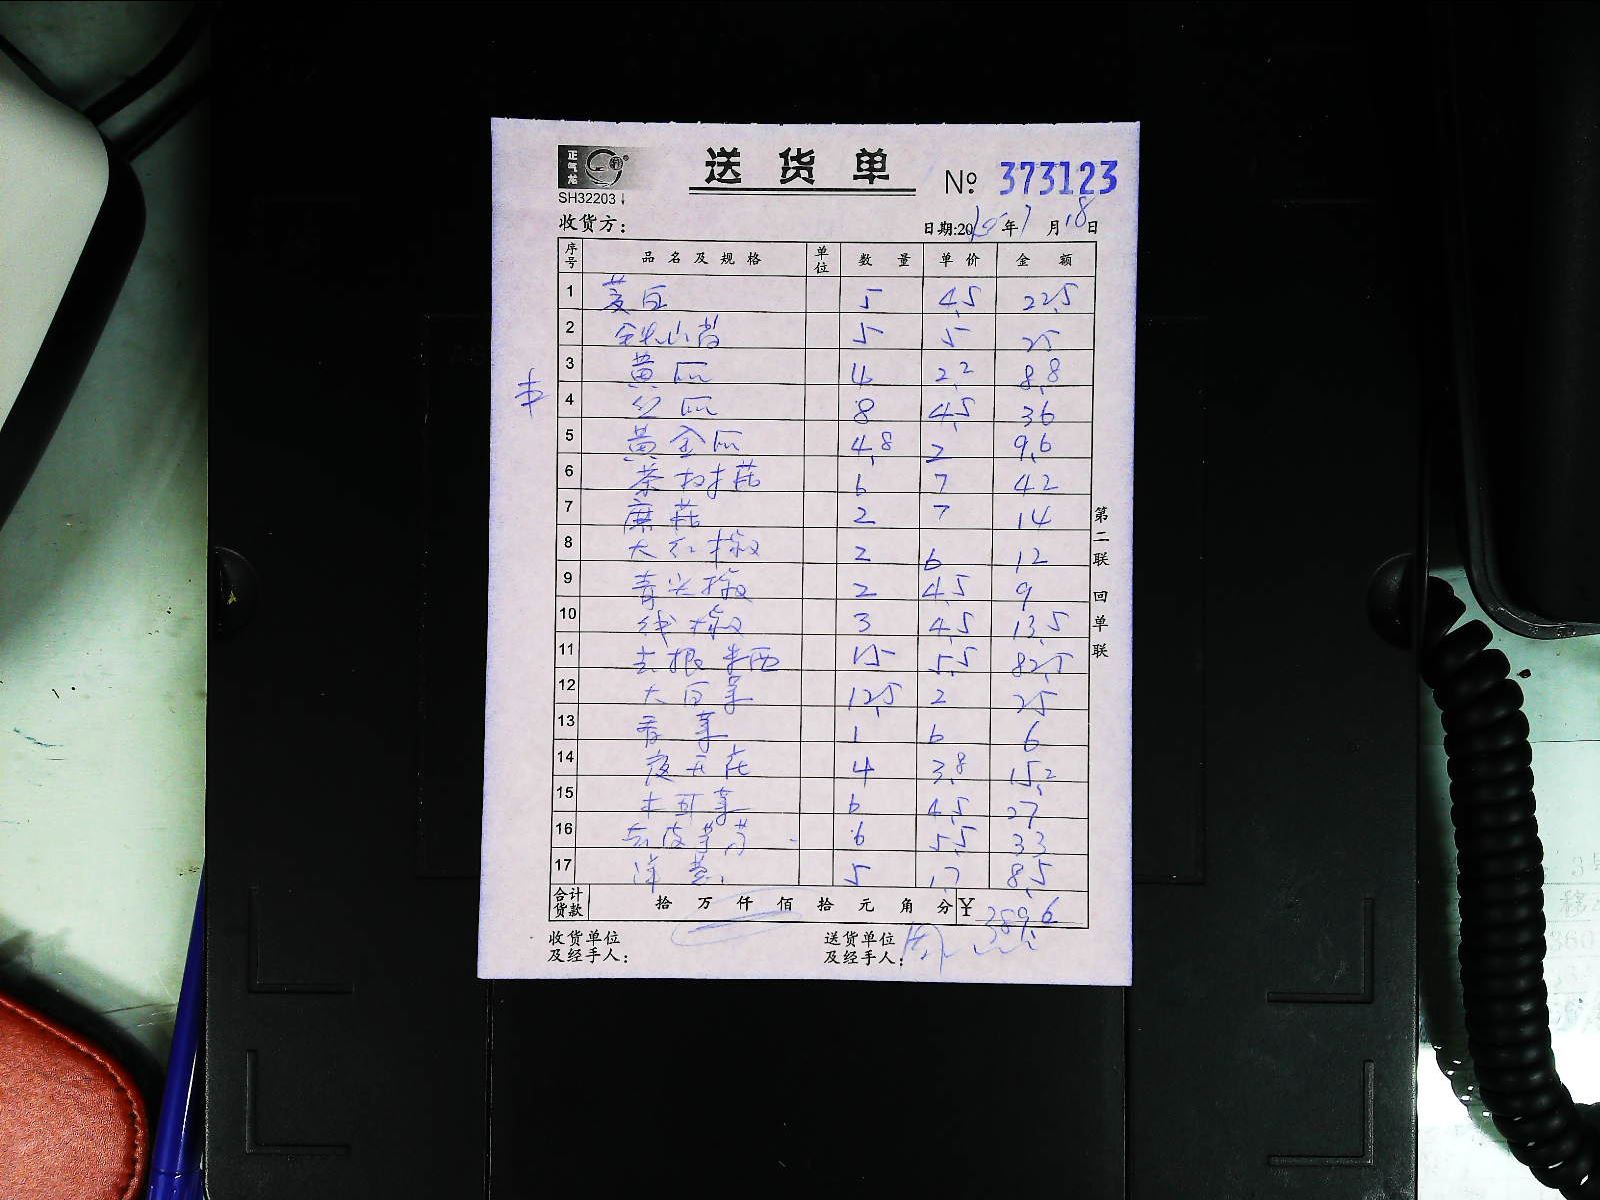 正气龙
送货单
№ 373123
SH32203
收货方:
日期:2015年1月18日
序号 品名及规格 单位 数量 单价 金额
1 茭白 5 4.5 22.5
2 铁山药 5 5 25
3 黄瓜 4 2.2 8.8
4 丝瓜 8 4.5 36
5 黄金瓜 4.8 2 9.6
6 茶树菇 6 7 42
7 蘑菇 2 7 14
8 大红椒 2 6 12
9 青尖椒 2 4.5 9
10 线椒 3 4.5 13.5
11 去根米西 15 5.5 82.5
12 大白菜 12.5 2 25
13 香菜 1 6 6
14 夜开花 4 3.8 15.2
15 木耳菜 6 4.5 27
16 去皮芋艿 6 5.5 33
17 洋葱 5 1.7 8.5
合计货款 拾万仟佰拾元角分 ¥ 389.6
收货单位及经手人:
送货单位及经手人:
第二联 回单联